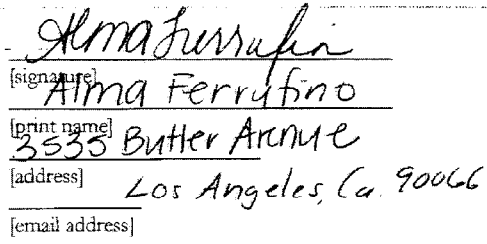 Alma Ferrufin
[signature]
Alma Ferrufino
[print name]
3535 Butler Avenue
[address]
Los Angeles, Ca. 90066
[email address]